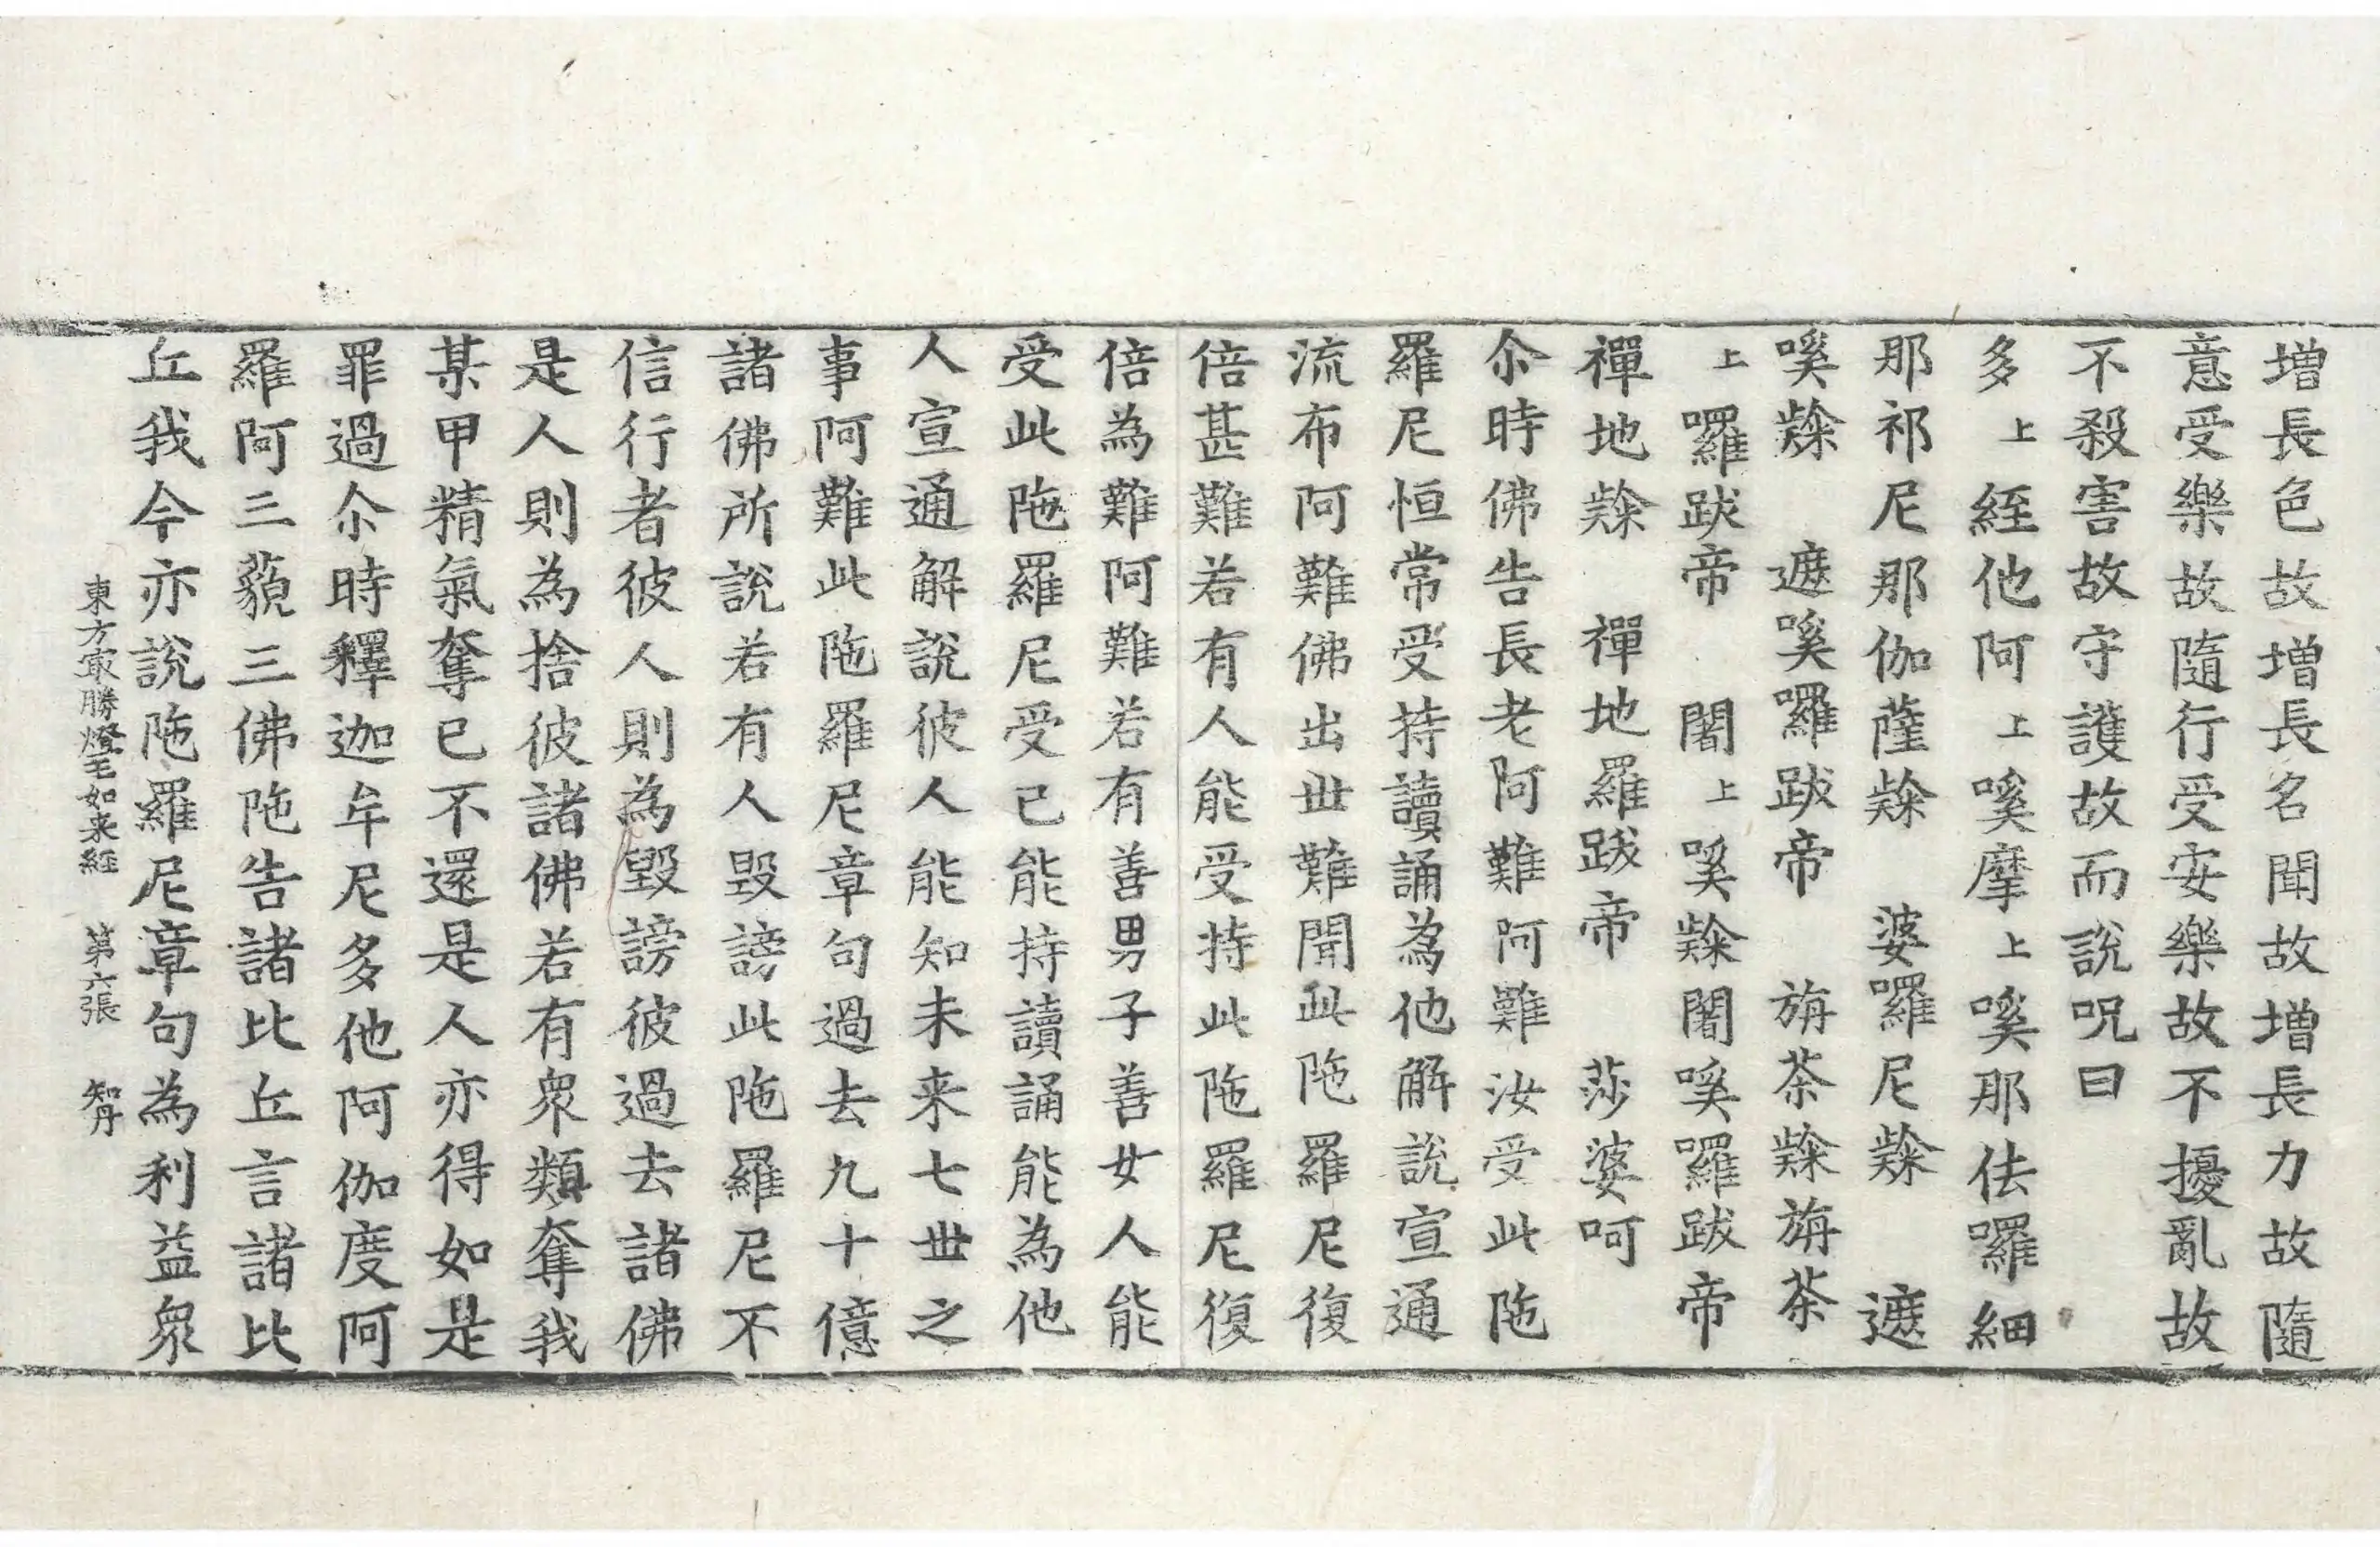 増長色故増長名聞故増長力故隨
意受樂故隨行受安樂故不擾亂故
不殺害故守護故而說呪曰
多上絰他阿上嗘摩上嗘那佉囉細
那祁尼那伽薩㸹 婆囉尼㸹 遮
嗘㸹 遮嗘囉跋帝 旃茶㸹旃茶
上囉跋帝 闍上嗘㸹闍嗘囉跋帝
禪地㸹 禪地羅跋帝 莎婆呵
尒時佛告長老阿難阿難汝受此陁
羅尼恒常受持讀誦為他解說宣通
流布阿難佛出世難聞此陁羅尼復
倍甚難若有人能受持此陁羅尼復
倍為難阿難若有善男子善女人能
受此陁羅尼受已能持讀誦能為他
人宣通解說彼人能知未来七世之
事阿難此陁羅尼章句過去九十億
諸佛所說若有人毀謗此陁羅尼不
信行者彼人則為毀謗彼過去諸佛
是人則為捨彼諸佛若有衆類奪我
某甲精氣奪已不還是人亦得如是
罪過尒時釋迦牟尼多他阿伽度阿
羅阿三藐三佛陁告諸比丘言諸比
丘我今亦說陁羅尼章句為利益衆
東方冣勝燈王如来經 第六張 智丹